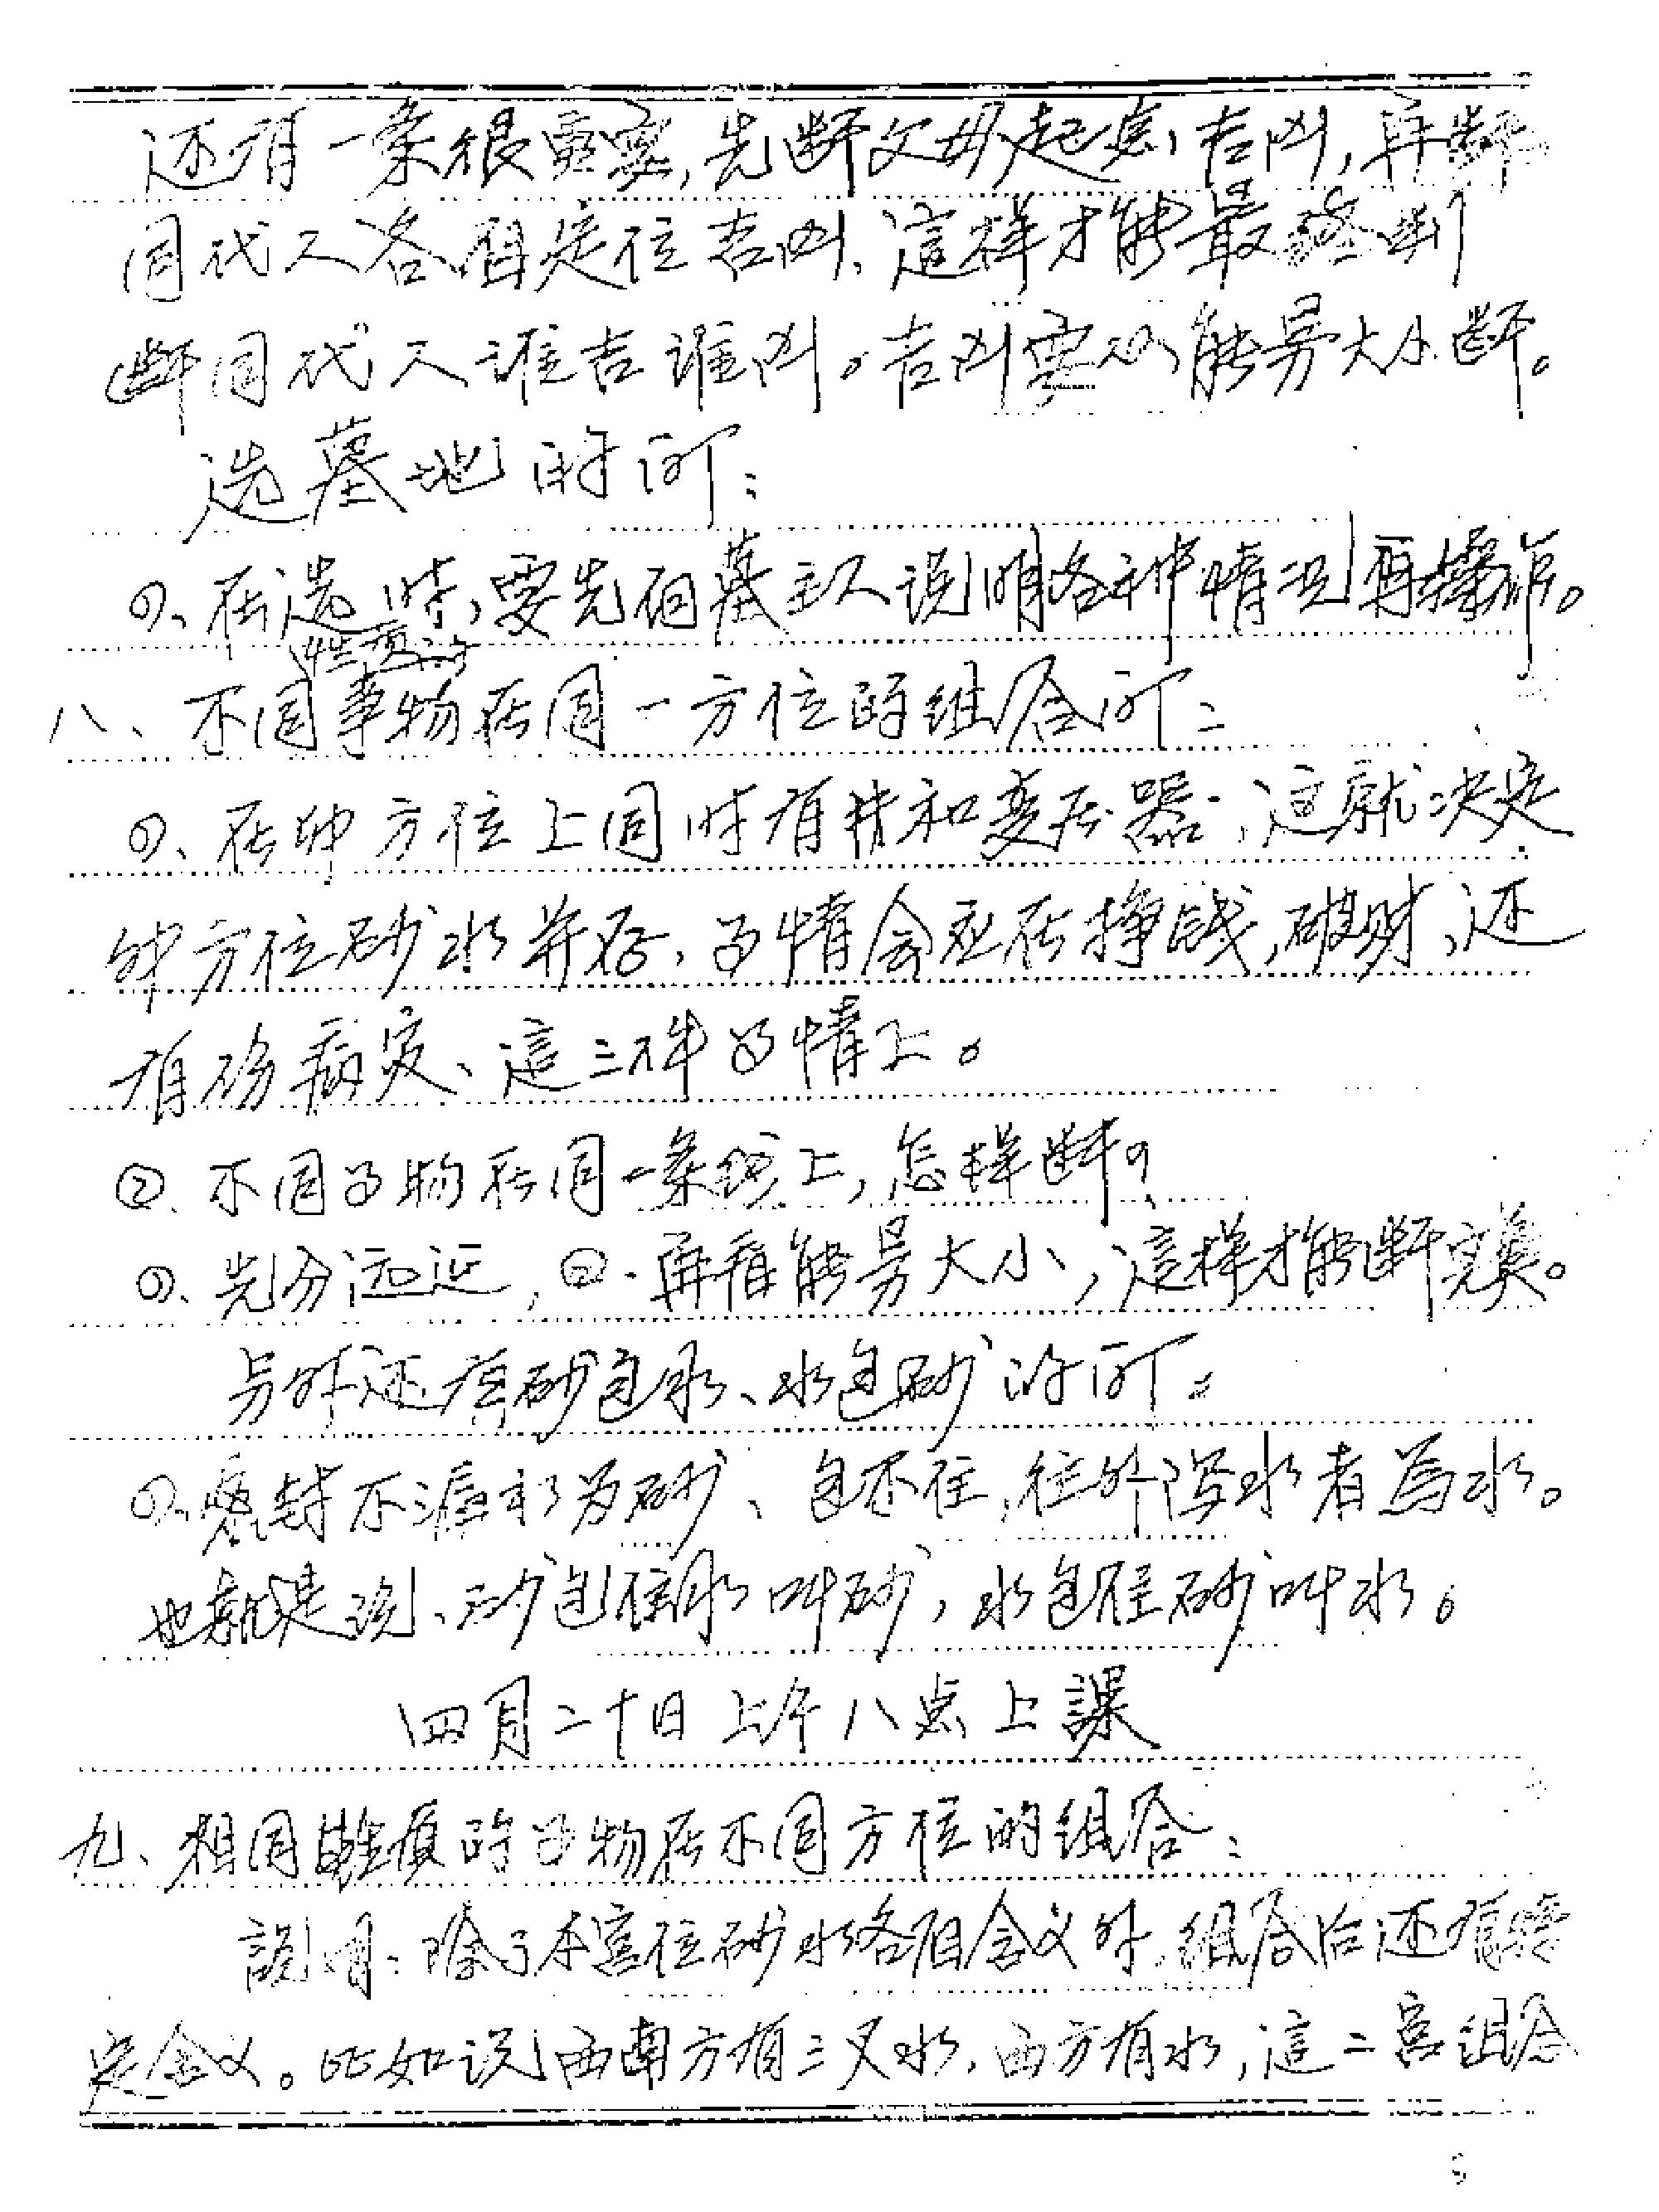 还有一条很重要,先断父母起点吉凶,再断
同代人各自定位吉凶、這样才能最终判
断同代人谁吉谁凶。吉凶要以能量大小断。
选墓地的断:
①、在选时,要先向墓主人说明各种情况再操作。
性质的
八、不同事物在同一方位的组合断:
①、在坤方位上同时有井和变压器,这就决定
坤方位砂水并存、事情会应在挣钱,破财,还
有伤病灾、這三件事情上。
②、不同事物在同一条线上,怎样断?
①、先分远近,②、再看能量大小,這样才能断完美。
另外还有砂包水、水包砂的断。
①、密封不漏水为砂、包不住,往外泻水者為水。
也就是说、砂包住水叫砂,水包住砂叫水。
四月二十日上午八点上課
九、相同性质的事物在不同方位的组合:
說明:除了本宫位砂水各自含义外,组合后还有特
定含义。比如说西南方有三叉水,西方有水,這二宫组合
5